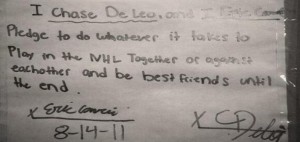 I Chase De Leo, and I Eric
Pledge to do whatever it takes to
Play in the NHL Together or against
eachother and be best friends until
the end.
x Eric
8-14-11 x